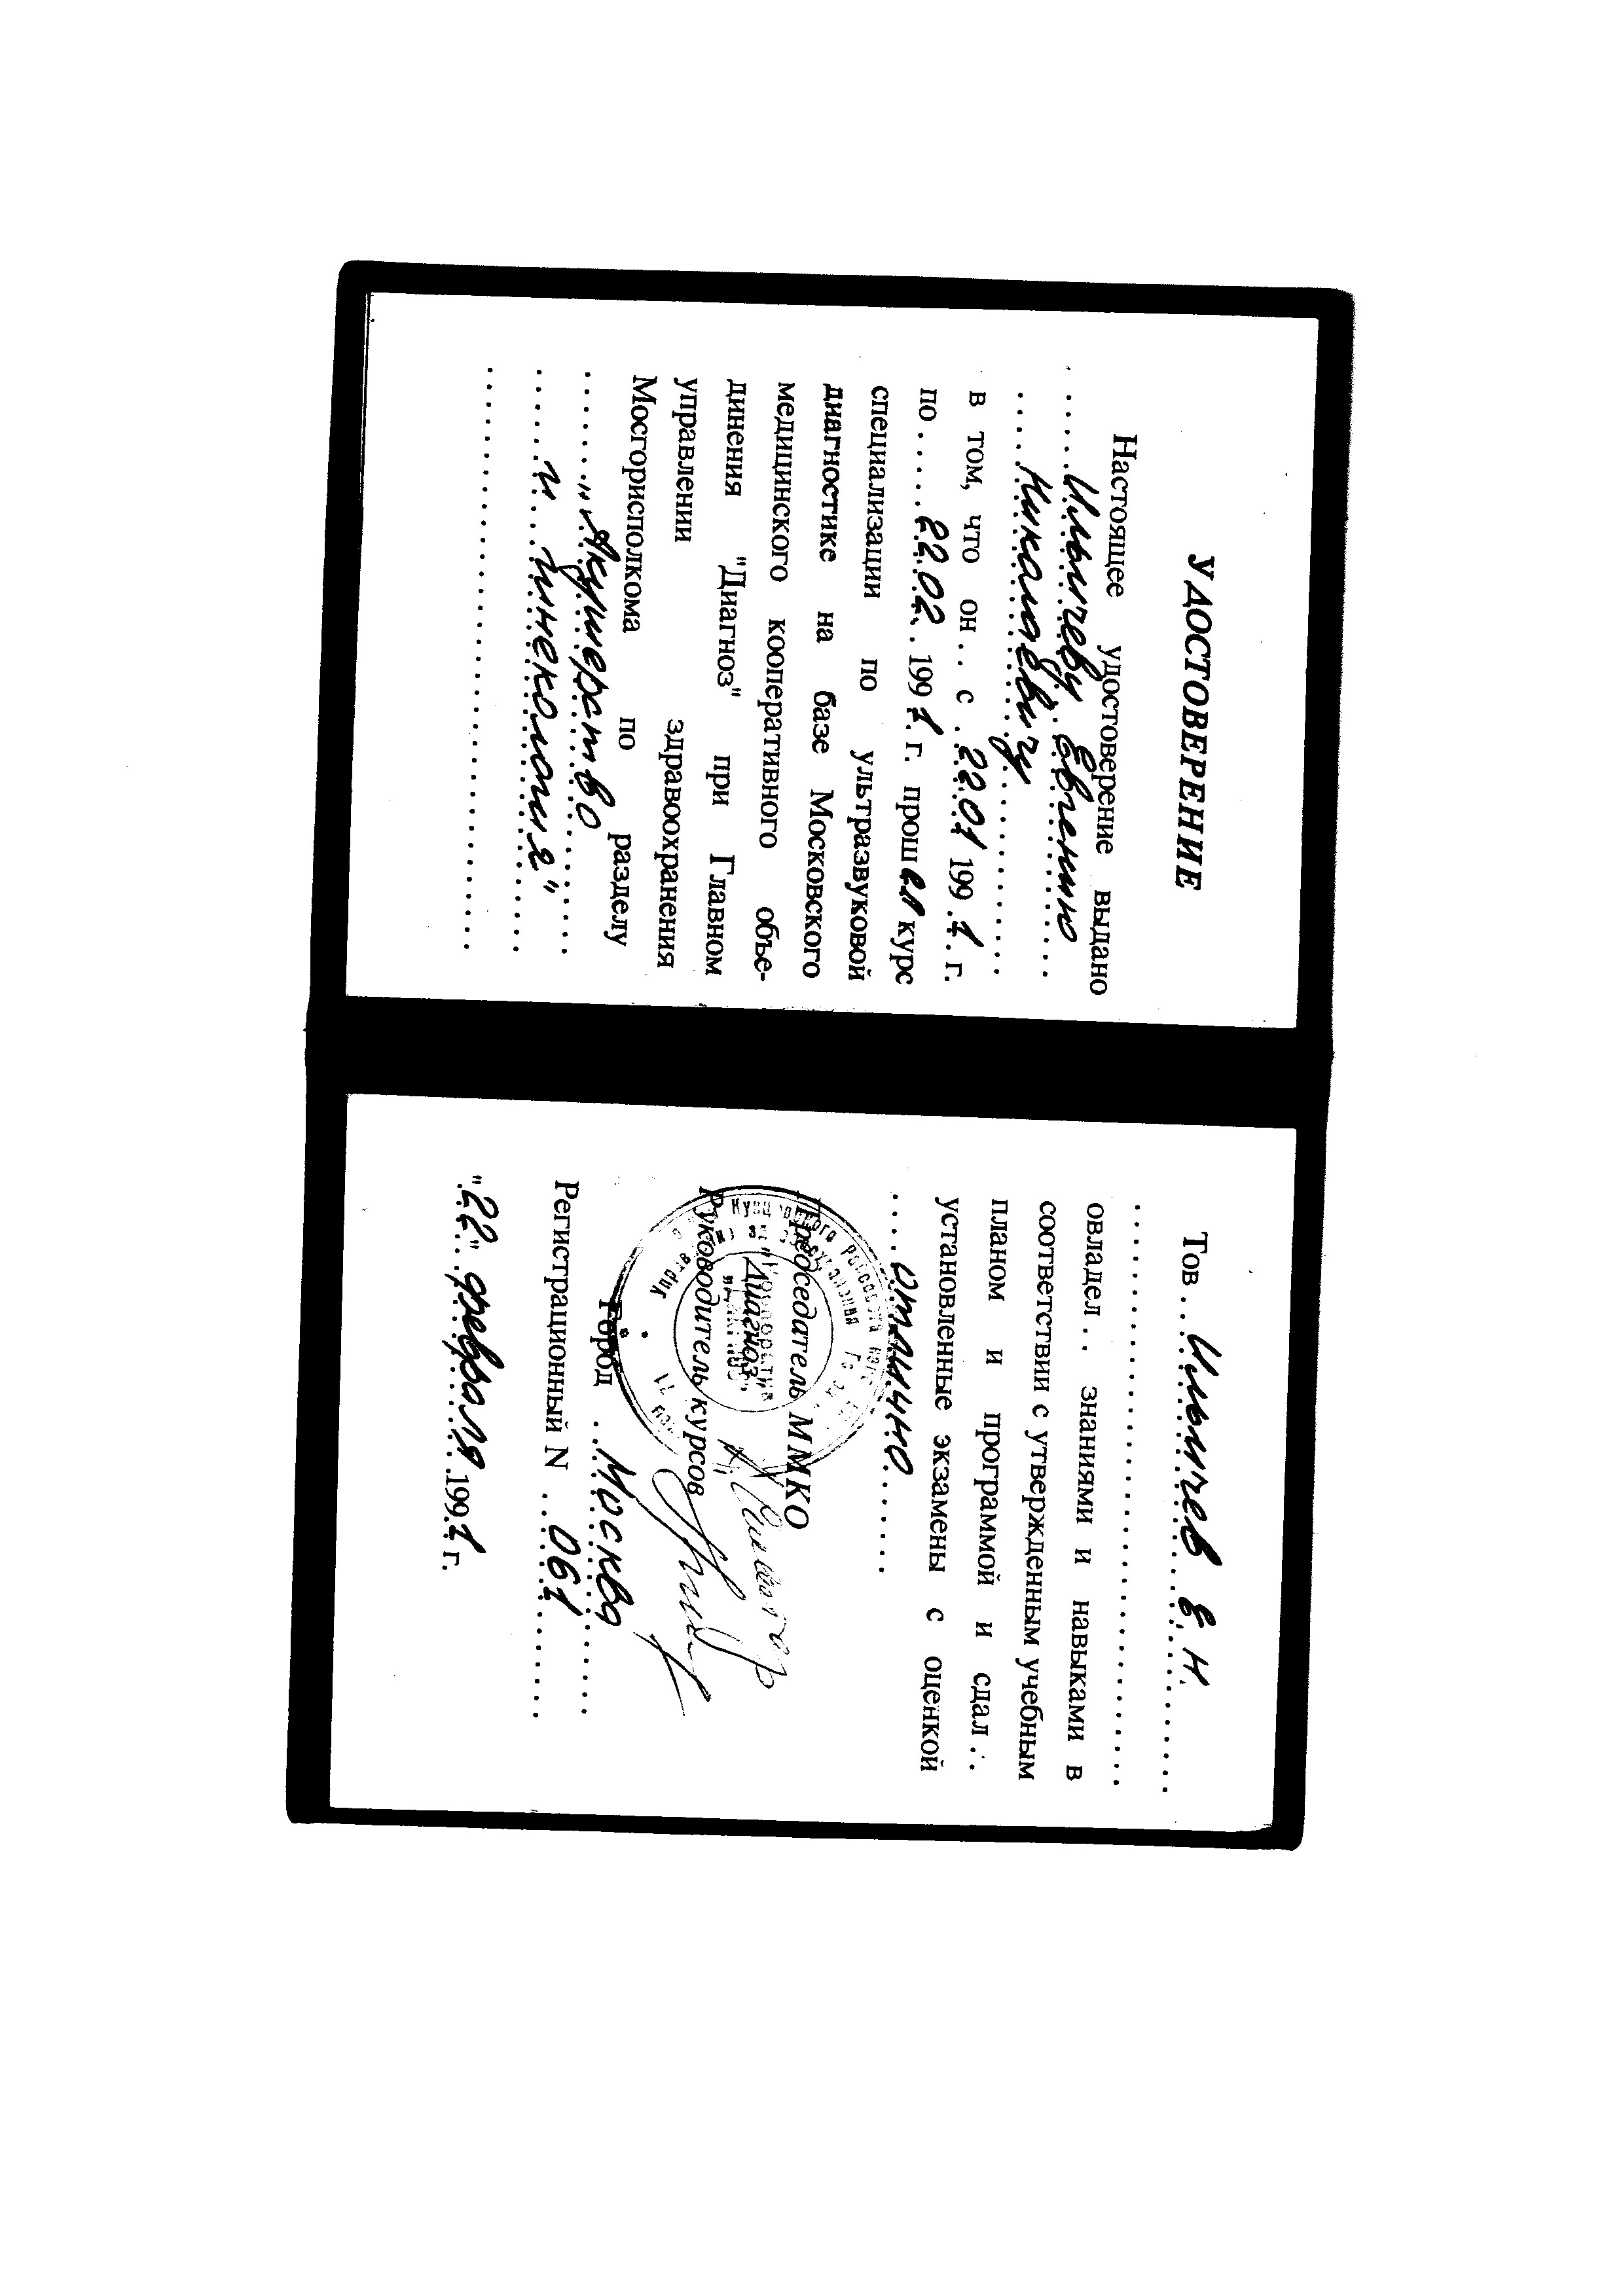 УДОСТОВЕРЕНИЕ
Настоящее удостоверение выдано
Ильичеву Евгению
Николаевичу
в том, что он .. с .22.01 199.1. г.
по ..... 22.02. . 199 1. г. прошел курс
специализации по ультразвуковой
диагностике на базе Московского
медицинского кооперативного объе-
динения "Диагноз" при Главном
управлении здравоохранения
Мосгорисполкома по разделу
"Акушерство
и гинекология"
Тов... Ильичев Е. Н.
овладел .. знаниями и навыками в
соответствии с утвержденным учебным
планом и программой и сдал ..
установленные экзамены с оценкой
отлично
Председатель ММКО
Руководитель курсов
"Диагноз"
Город ..Москва
Регистрационный N ... 061
"22" февраля 199.1 г.